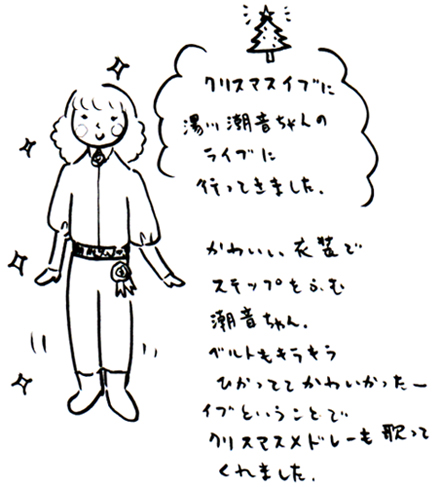 クリスマスイブに
湯川潮音ちゃんの
ライブに
行ってきました.
かわいい衣装で
ステップをふむ
潮音ちゃん.
ベルトもキラキラ
ひかっててかわいかったー
イブということで
クリスマスメドレーも歌って
くれました.